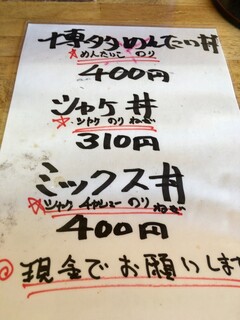 博多めんたい丼
☆めんたいこ のり
400円
シャケ丼
☆シャケ のり ねぎ
310円
ミックス丼
☆シャケ チャシュー のり ねぎ
400円
◎現金でお願いします